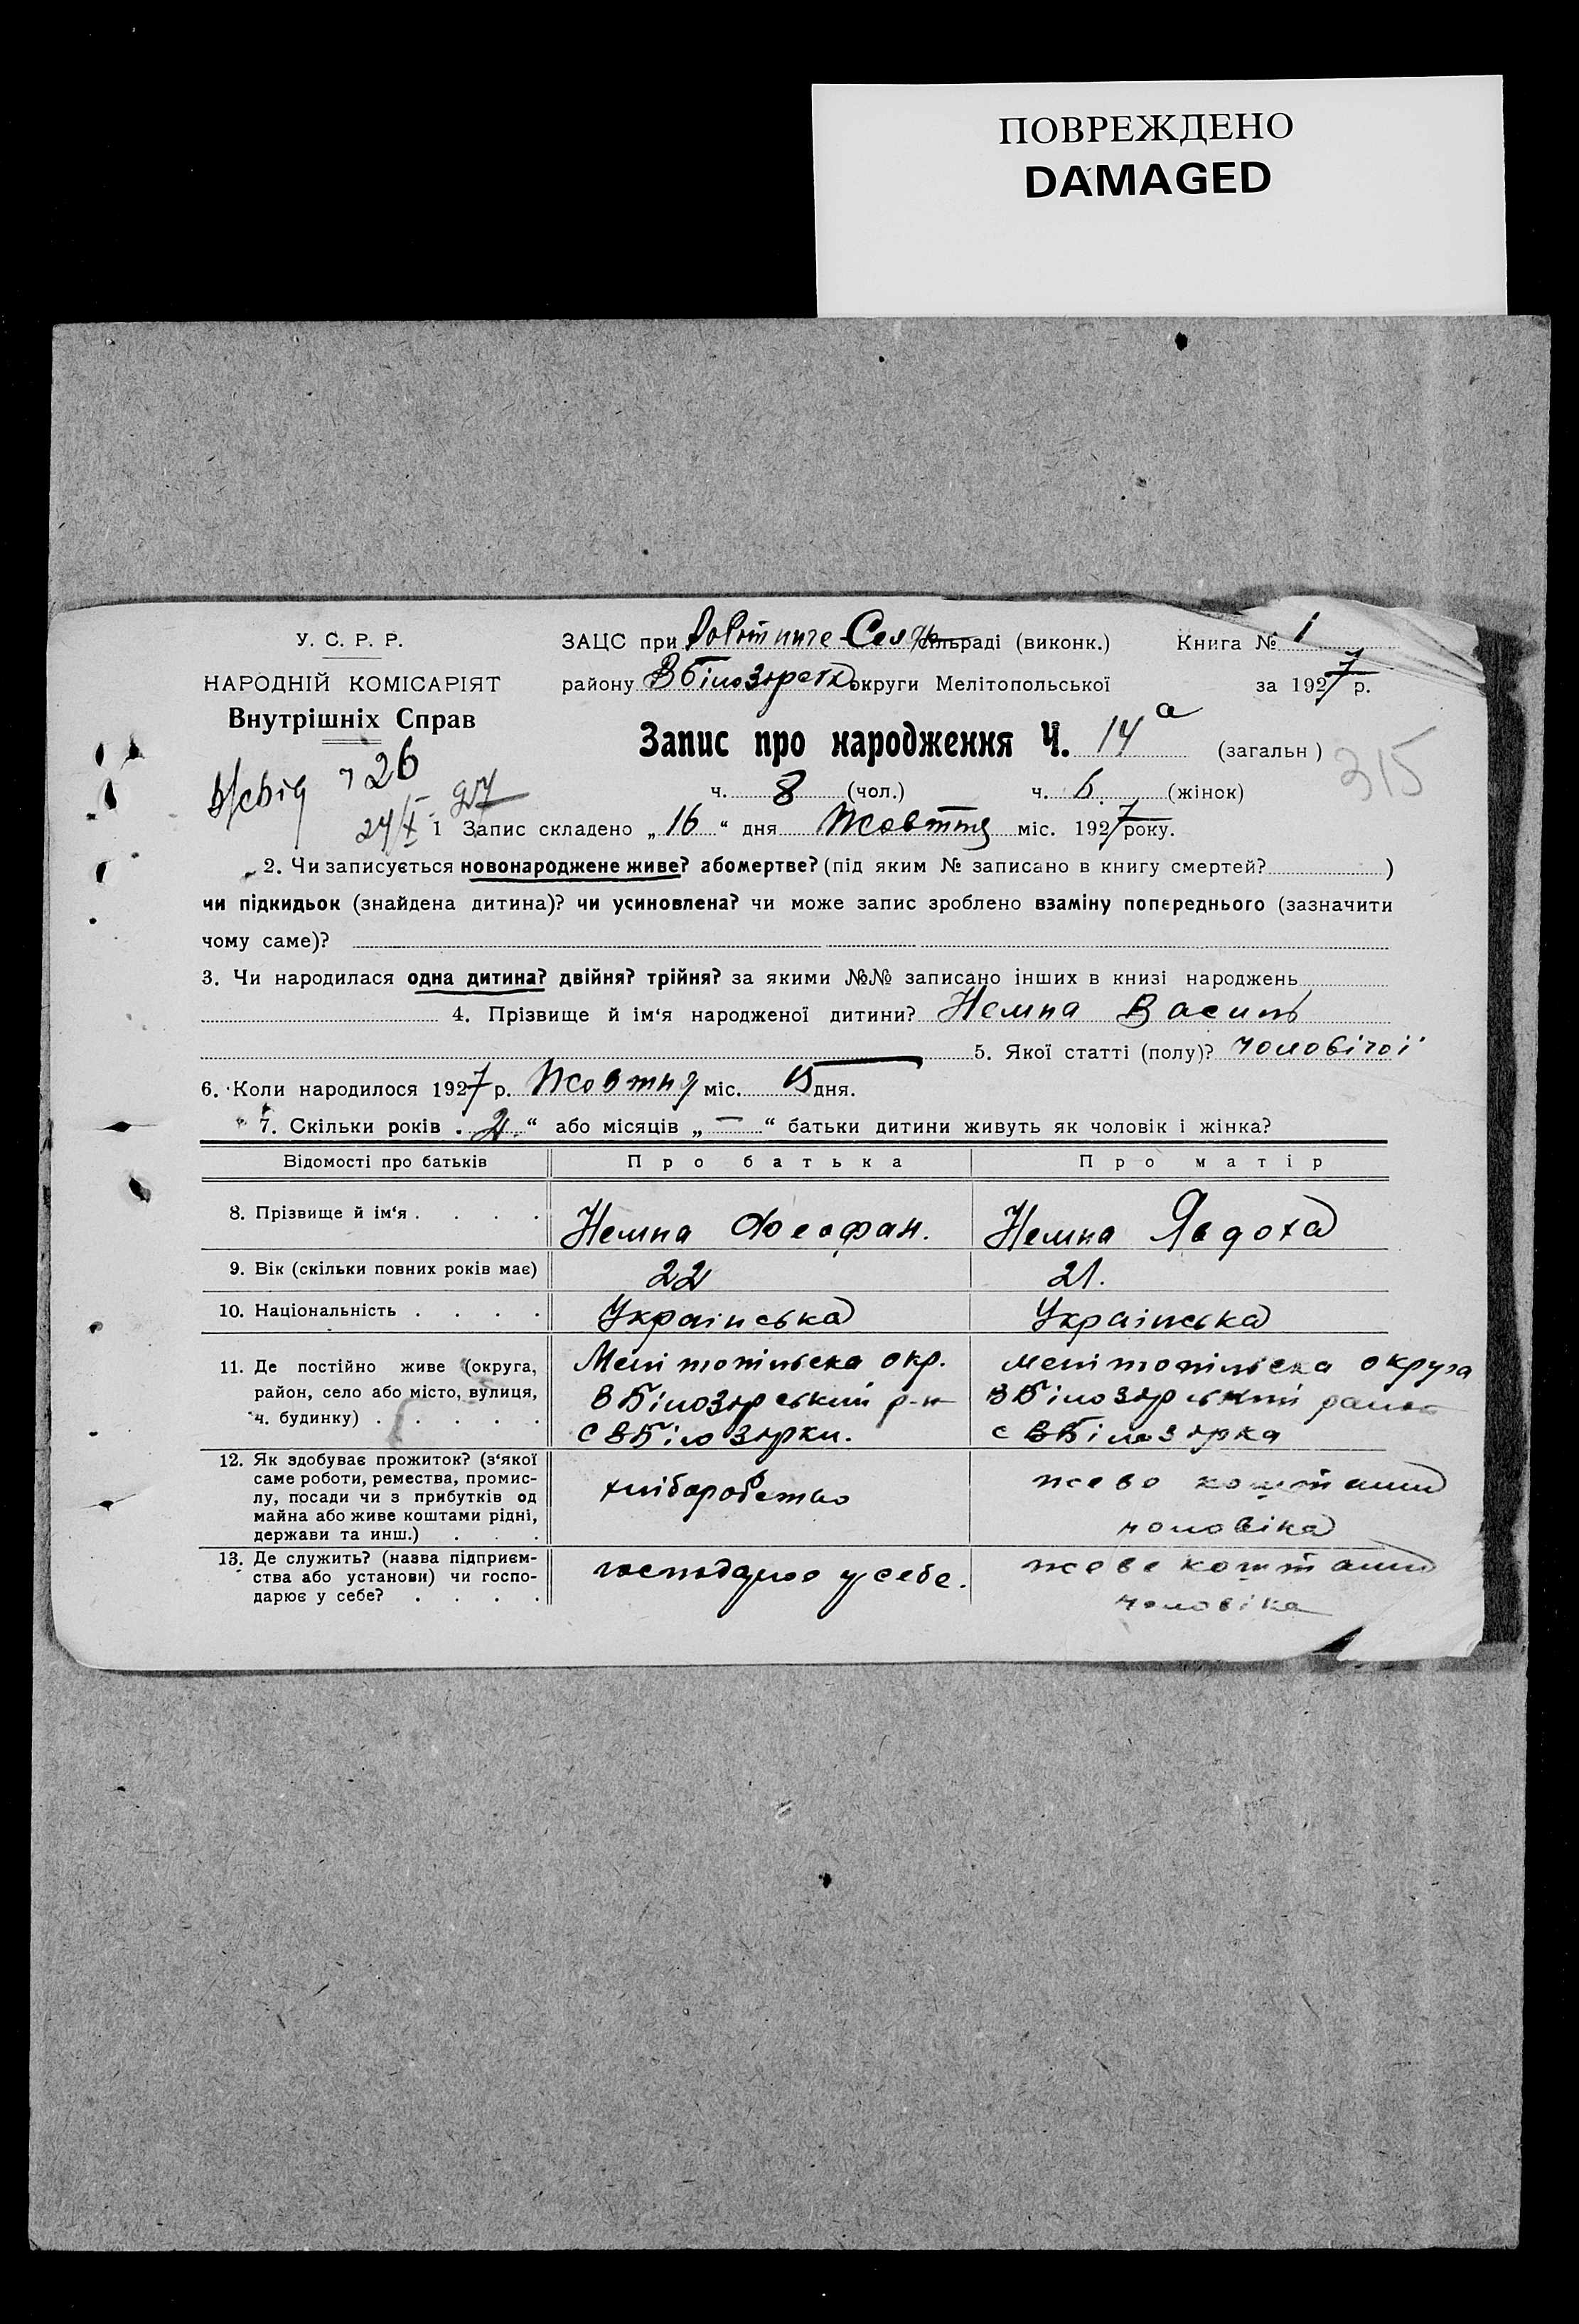 ПОВРЕЖДЕНО
DAMAGED
У. С. Р. Р.
НАРОДНІЙ КОМІСАРІЯТ
Внутрішніх Справ
ЗАЦС при сільраді (виконк.) Книга № 1
району ВБілозірськ округи Мелітопольської за 1927 р.
Запис про народження Ч. 14а (загальн)
315
ч. 8 (чол.) ч. 6. (жінок)
126
24/X 27
1 Запис складено „16“ дня Жовтня міс. 1927 року.
2. Чи записується новонароджене живе? або мертве? (під яким № записано в книгу смертей? )
чи підкидьок (знайдена дитина)? чи усиновлена? чи може запис зроблено взаміну попереднього (зазначити
чому саме)?
3. Чи народилася одна дитина? двійня? трійня? за якими №№ записано інших в книзі народжень
4. Прізвище й ім‘я народженої дитини? Немпа Василь
5. Якої статті (полу)? чоловічої
6. Коли народилося 1927 р. Жовтня міс. 15 дня.
7. Скільки років „2“ або місяців „—“ батьки дитини живуть як чоловік і жінка?
Відомості про батьків Про батька Про матір
8. Прізвище й ім‘я . . . . Немпа Феофан. Немпа Явдоха
9. Вік (скільки повних років має) 22 21.
10. Національність . . . . Українська Українська
11. Де постійно живе (округа, Мелітопільска окр. мелітопільска округа
район, село або місто, вулиця, ВБілозірський р-н ВБілозірський район
ч. будинку) . . . . . с ВБілозірки. с ВБілозірка
12. Як здобуває прожиток? (з‘якої
саме роботи, ремества, промис-
лу, посади чи з прибутків од
майна або живе коштами рідні,
держави та инш.) . . .
хліборобство
живе коштами
чоловіка
13. Де служить? (назва підприєм-
ства або установи) чи госпо-
дарює у себе? . . . .
господарює у себе.
живе коштами
чоловіка